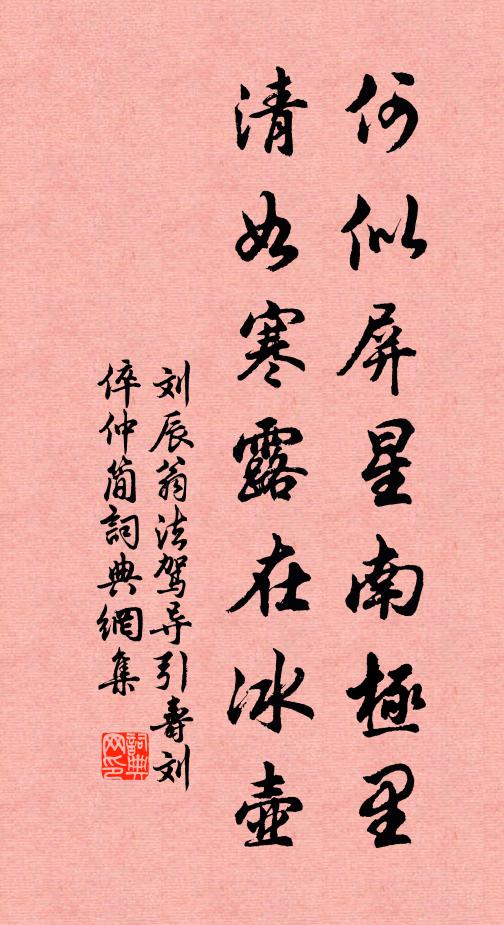 何似屏星南極里
清如寒露在冰壺
刘辰翁法駕导引壽刘
倅仲简詞典網集
詞典网印